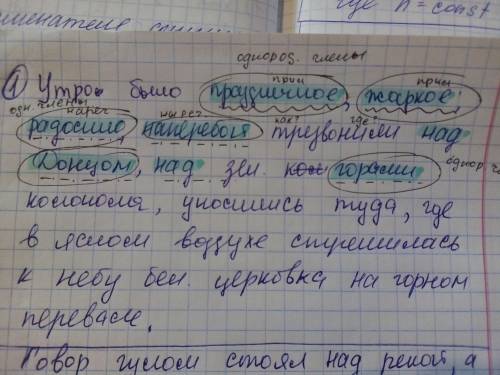 менателе
где n = const
однород. члены
прил прил
① Утро было праздничное, жаркое;
одн. члены
нареч нареч как? где?
радостно, наперебой трезвонили над
Донцом, над зел. горами
однор
колокола, уносились туда, где
в ясном воздухе стремилась
к небу бел. церковка на горном
перевале.
Говор гулом стоял над рекой, а